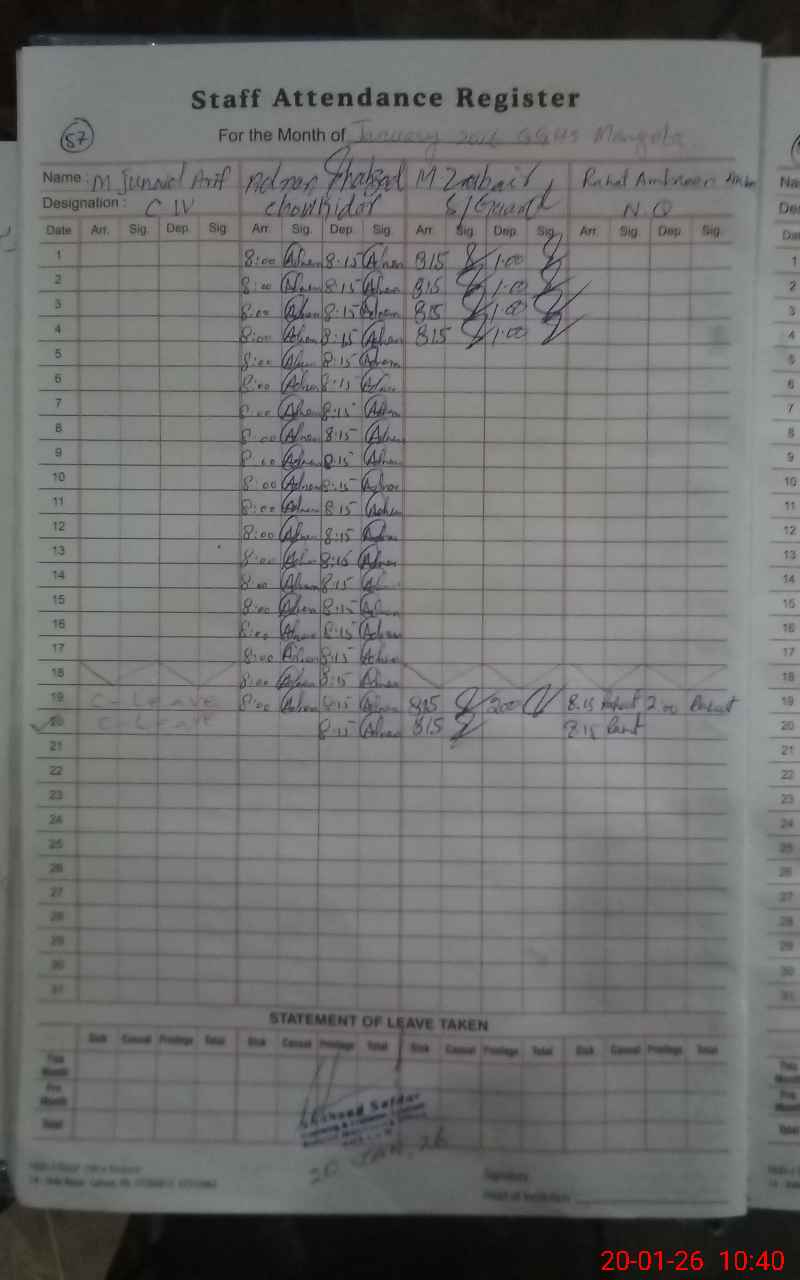 Staff Attendance Register
57
For the Month of January 2026 GGHS
Name : M Junaid Arif Adnan Shahzad M Zubair Rahat Ambreen
Designation : C IV Chowkidar S/Guard N.Q
Date Arr. Sig. Dep. Sig. Arr. Sig. Dep. Sig. Arr. Sig. Dep. Sig. Arr. Sig. Dep. Sig.
1 8:00 Adnan 8:15 Adnan 815 1:00
2 8:00 Adnan 8:15 Adnan 815 1:00
3 8:00 Adnan 8:15 Adnan 815 1:00
4 8:00 Adnan 8:15 Adnan 815 1:00
5 8:00 Adnan 8:15 Adnan
6 8:00 Adnan 8:15 Adnan
7 8:00 Adnan 8:15 Adnan
8 8:00 Adnan 8:15 Adnan
9 8:00 Adnan 8:15 Adnan
10 8:00 Adnan 8:15 Adnan
11 8:00 Adnan 8:15 Adnan
12 8:00 Adnan 8:15 Adnan
13 8:00 Adnan 8:15 Adnan
14 8:00 Adnan 8:15
15 8:00 Adnan 8:15 Adnan
16 8:00 Adnan 8:15 Adnan
17 8:00 Adnan 8:15 Adnan
18 8:00 Adnan 8:15 Adnan
19 C-Leave 8:00 Adnan 8:15 Adnan 815 200 8.15 Rahat 2:00 Rahat
20 C-Leave 8:15 Adnan 815 8:15
21
22
23
24
25
26
27
28
29
30
31
STATEMENT OF LEAVE TAKEN
Sick Casual Privilege Total Sick Casual Privilege Total Sick Casual Privilege Total Sick Casual Privilege Total
This Month
Pre. Month
Total
20 JAN 26
20-01-26 10:40